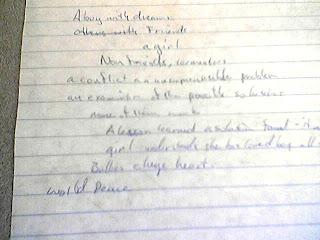 A boy with dreams
others with friends
a girl
Non friends, encounters
a conflict an incomprehensible problem
an examination of the possible solutions
none of them work
A lesson learned a solution found - it
girl understands she has loved by all
Bother huge heart.
World Peace